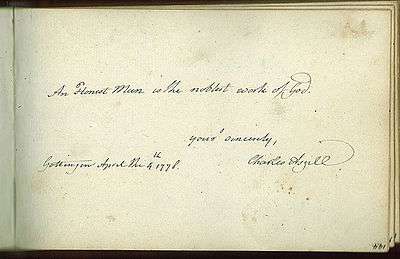 An Honest Man is the noblest work of God.
yours sincerely,
Gottingen April the 4th 1778.
Charles Asgill
144